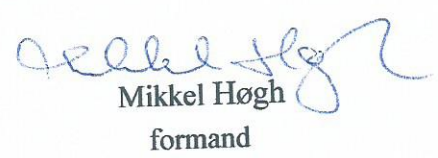 Mikkel Høgh
Mikkel Høgh
formand